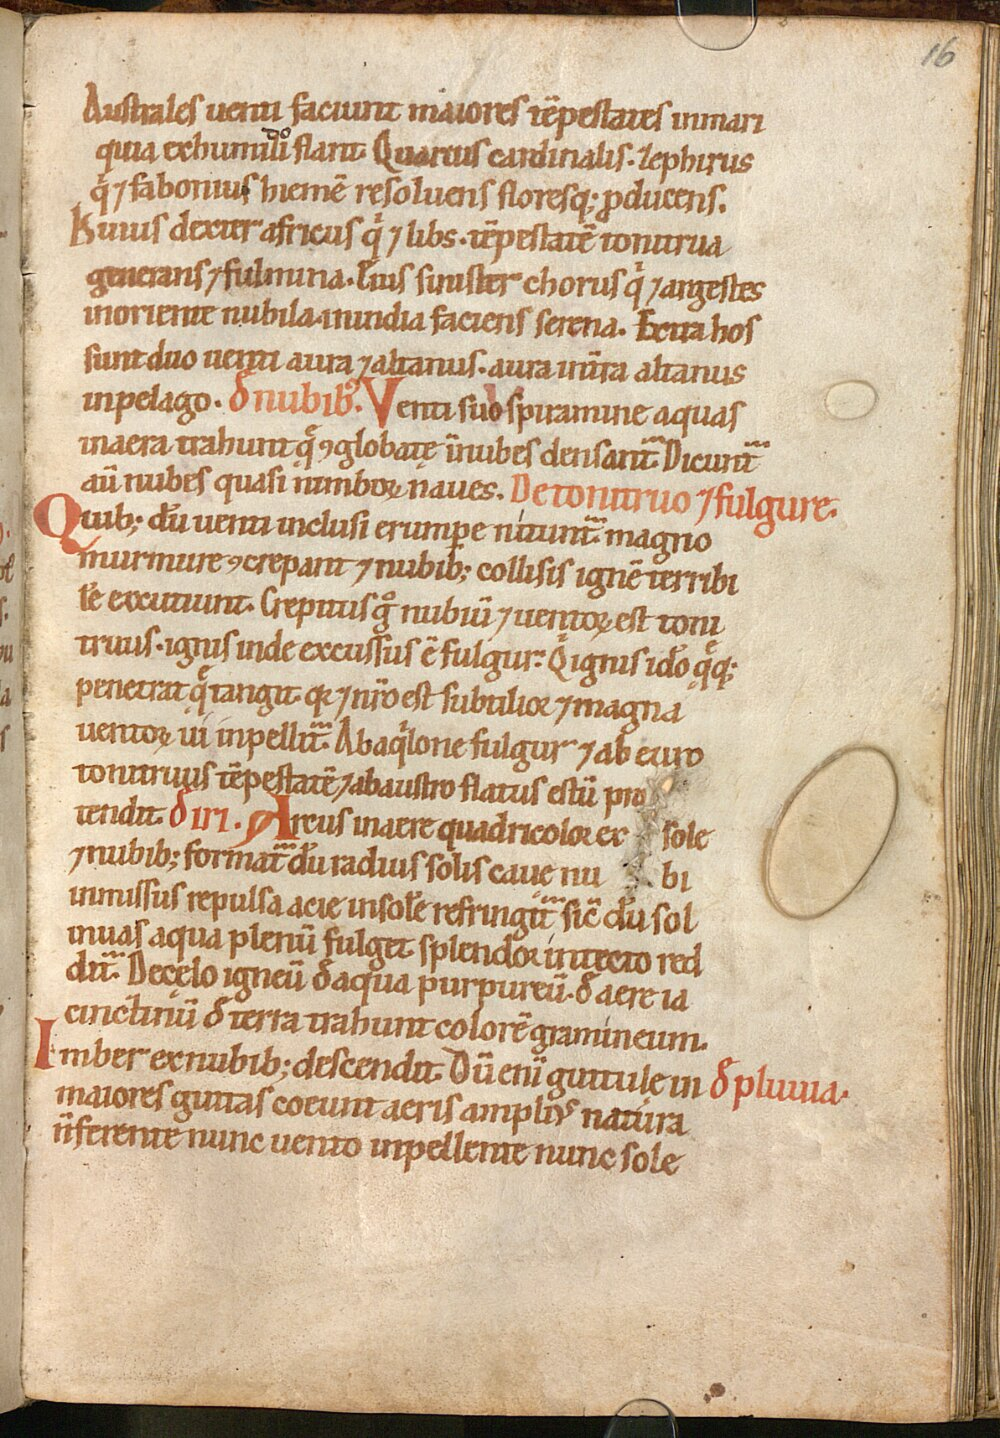 16
Australes uenti faciunt maiores tēpestates inmari
quia exhumili flant. Quartus cardinalis. Zephirus
q̇ ⁊ fabonius hiemē resoluens floresq; ꝓducens.
Huius dexter africus q̇ ⁊ libs. tēpestatē tonitrua
generans ⁊ fulmina. Eius sinister chorus q̇ ⁊ argestes
inoriente nubila inindia faciens serena. Extra hos
sunt duo uenti aura ⁊ altanus. aura int̄ra altanus
inpelago. đ nubib⁹. Venti suo spiramine aquas
inaera trahunt q̄ ꝯglobatę īnubes densant᷑. Dicunt᷑
aū nubes quasi nimboꝝ naues. De tonitruo ⁊ fulgure.
Quib; dū uenti inclusi erumpe nitunt᷑. magno
murmure ꝯcrepant ⁊ nubib; collisis ignē terribi
le excutiunt. Crepitus g̊ nubiū ⁊ uentoꝝ est toni
truus. ignis inde excussus ē fulgur. Q̇ ignis ido q̄q;
penetrat q̄ tangit. qr ⁊ nr̄o est subtilior ⁊ magna
uentoꝝ ui inpellit᷑. Abaq̇lone fulgur ⁊ ab euro
tonitruus tēpestatē ⁊ abaustro flatus estū pro
tendit. đ iri. Arcus inaere quadricolor ex sole
⁊ nubib; format᷑ dū radius solis caue nu bi
inmissus repulsa acie insole refringit᷑ sic̄ dū sol
inuas aqua plenū fulget splendor intecto red
dit᷑. Decęlo igneū đ aqua purpureū. đ aere ia
cinctinū đ terra trahunt colorē gramineum.
Imber exnubib; descendit. Dū enī guttule in đ pluuia.
maiores guttas coeunt aeris ampli⁹ natura
n̄ ferente nunc uento inpellente nunc sole